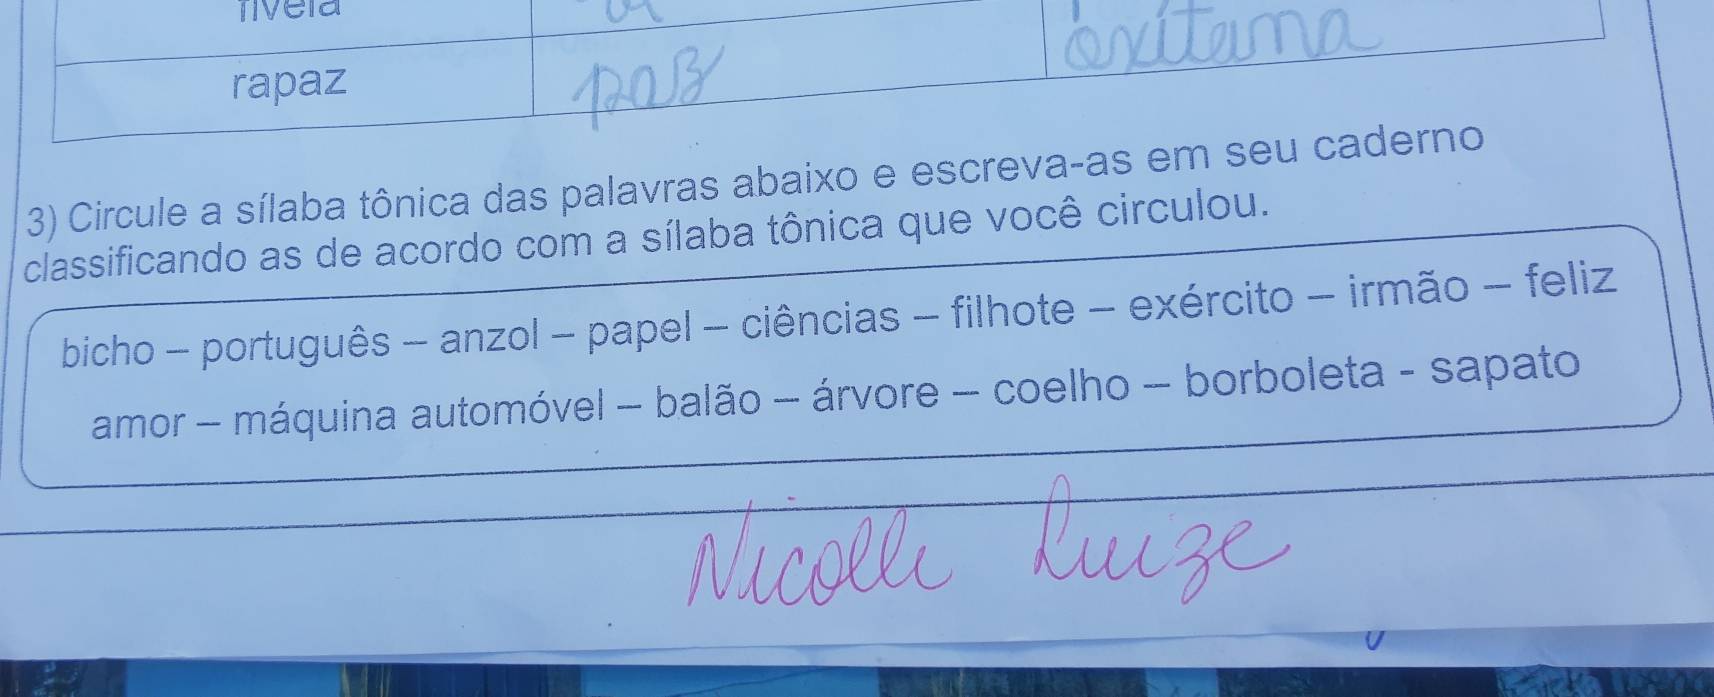 rapaz paz oxítama
3) Circule a sílaba tônica das palavras abaixo e escreva-as em seu caderno
classificando as de acordo com a sílaba tônica que você circulou.
bicho – português – anzol – papel – ciências – filhote – exército – irmão – feliz
amor – máquina automóvel – balão – árvore – coelho – borboleta - sapato
Nicolle Luize